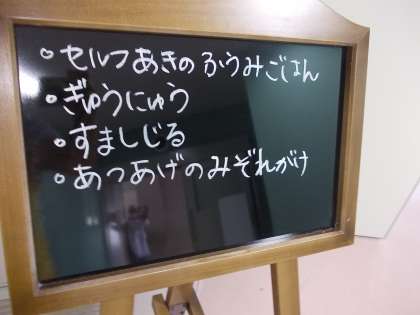 ・セルフあきのふうみごはん
・ぎゅうにゅう
・すましじる
・あつあげのみぞれがけ